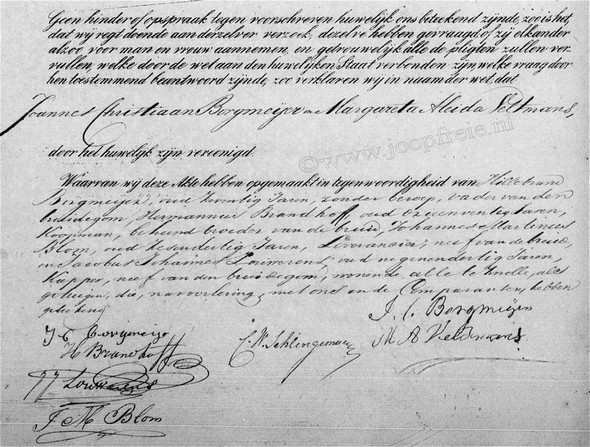 Geen hinder of opspraak tegen voorschreven huwelijk ons bekend zijnde, zoo is het,
dat wij regt doende aan derzelver verzoek, dezelve hebben gevraagd of zij elkander
alzoo voor man en vrouw aannemen, en getrouwelijk alle de pligten zullen ver-
vullen, welke door de wet aan den huwelijken Staat verbonden zijn, welke vraag door
hen toestemmend beantwoord zijnde, zoo verklaren wij in naam der wet, dat
Joannes Christiaan Borgmeijer en Margareta Aleida Veltmans,
©www.joopfreie.nl
door het huwelijk zijn vereenigd.
Waarvan wij deze Akte hebben opgemaakt in tegenwoordigheid van Hillebrand
Borgmeijer, oud zeventig Jaren, zonder beroep, vader van den
bruidegom, Hermannus Brandhoff, oud Jaren,
Koopman, behuwd broeder van de bruid, Johannes Martinus
Blom, oud Jaren, neef van de bruid,
en Jacobus Johannes Louwerens, oud negenendertig Jaren,
Kapper, neef van den bruidegom, wonende alle te Zwolle, als
getuigen, die, na voorlezing, met ons en de Comparanten, hebben
geteekend
J. C. Borgmeijer
H Brandhoff
C. W. Schlingemann
M A Veltmans
JJ Louwerens
J M Blom